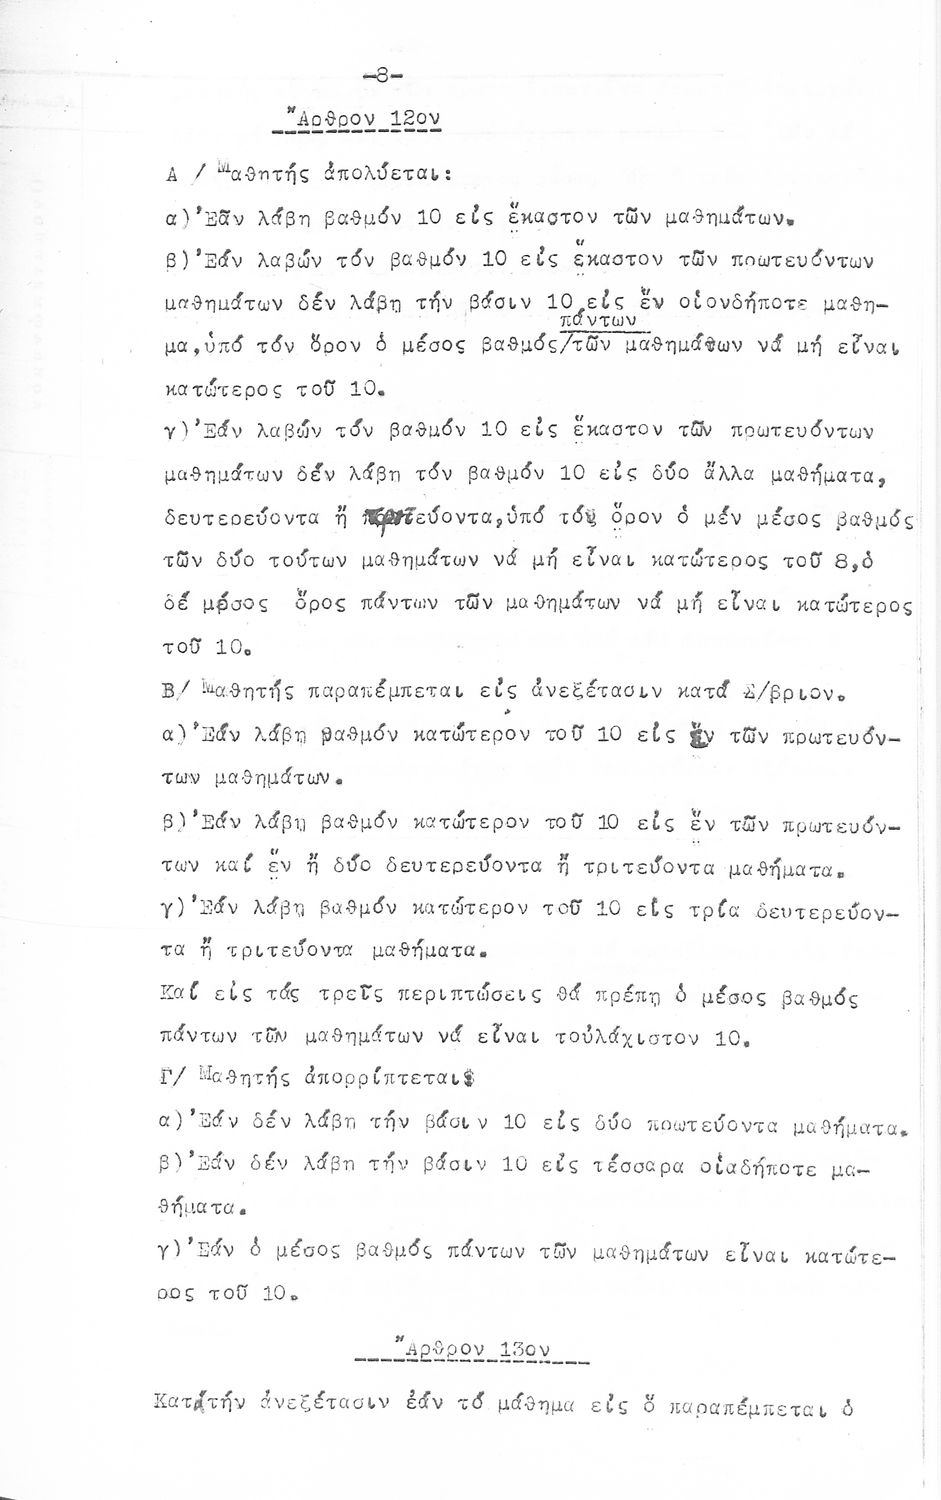 -8-
Ἄρθρον 12ον
Α / Μαθητής ἀπολύεται:
α)Ἐάν λάβη βαθμόν 10 εἰς ἕκαστον τῶν μαθημάτων.
β)Ἐάν λαβών τόν βαθμόν 10 εἰς ἕκαστον τῶν πρωτευόντων
μαθημάτων δέν λάβη τήν βάσιν 10 εἰς ἕν οἱονδήποτε μαθη-
πάντων
μα,ὑπό τόν ὅρον ὁ μέσος βαθμός/τῶν μαθημάτων νά μή εἶναι
κατώτερος τοῦ 10.
γ)Ἐάν λαβών τόν βαθμόν 10 εἰς ἕκαστον τῶν πρωτευόντων
μαθημάτων δέν λάβη τόν βαθμόν 10 εἰς δύο ἄλλα μαθήματα,
δευτερεύοντα ἤ τριτεύοντα,ὑπό τόν ὅρον ὁ μέν μέσος βαθμός
τῶν δύο τούτων μαθημάτων νά μή εἶναι κατώτερος τοῦ 8,ὁ
δέ μέσος ὅρος πάντων τῶν μαθημάτων νά μή εἶναι κατώτερος
τοῦ 10.
Β/ Μαθητής παραπέμπεται εἰς ἀνεξέτασιν κατά Σ/βριον.
α)Ἐάν λάβη βαθμόν κατώτερον τοῦ 10 εἰς ἕν τῶν πρωτευόν-
των μαθημάτων.
β)Ἐάν λάβη βαθμόν κατώτερον τοῦ 10 εἰς ἕν τῶν πρωτευόν-
των καί ἕν ἤ δύο δευτερεύοντα ἤ τριτεύοντα μαθήματα.
γ)Ἐάν λάβη βαθμόν κατώτερον τοῦ 10 εἰς τρία δευτερεύον-
τα ἤ τριτεύοντα μαθήματα.
Καί εἰς τάς τρεῖς περιπτώσεις θά πρέπη ὁ μέσος βαθμός
πάντων τῶν μαθημάτων νά εἶναι τοὐλάχιστον 10.
Γ/ Μαθητής ἀπορρίπτεται:
α)Ἐάν δέν λάβη τήν βάσιν 10 εἰς δύο πρωτεύοντα μαθήματα.
β)Ἐάν δέν λάβη τήν βάσιν 10 εἰς τέσσαρα οἱαδήποτε μα-
θήματα.
γ)Ἐάν ὁ μέσος βαθμός πάντων τῶν μαθημάτων εἶναι κατώτε-
ρος τοῦ 10.
Ἄρθρον 13ον
Κατά τήν ἀνεξέτασιν ἐάν τό μάθημα εἰς ὅ παραπέμπεται ὁ